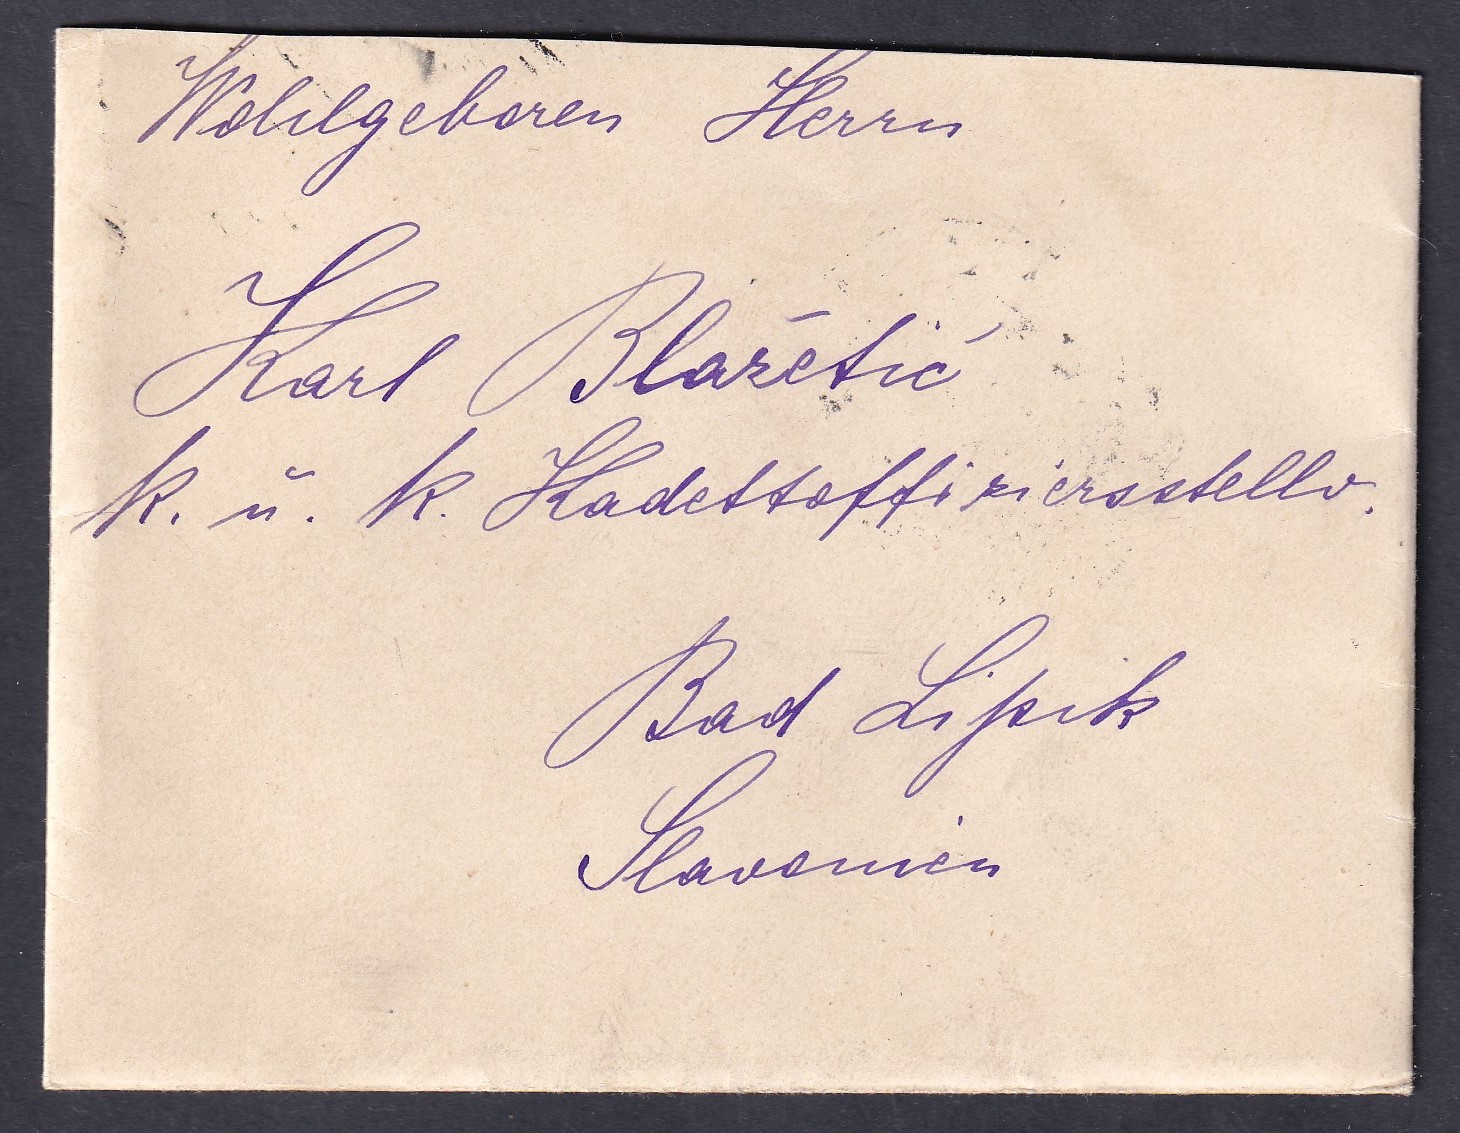 Wohlgeboren Herrn
Karl Blažetić
k. u. k. Kadettoffiziersstellv.
Bad Lipik
Slavonien